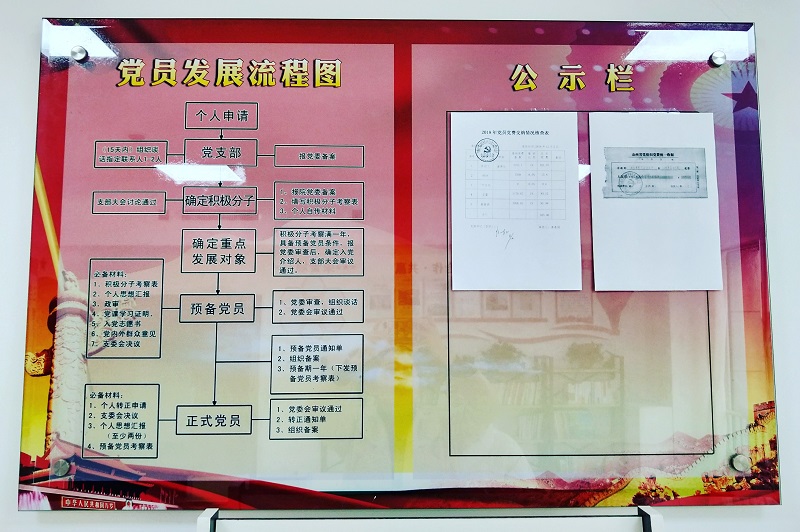 党员发展流程图
个人申请
（15天内）组织谈
话指定联系人1-2人
党支部
报党委备案
支部大会讨论通过
确定积极分子
1、报院党委备案
2、填写积极分子考察表
3、个人自传材料
确定重点
发展对象
积极分子考察满一年，
具备预备党员条件，报
党委审查后，确定入党
介绍人，支部大会审议
通过。
必备材料：
1、积极分子考察表
2、个人思想汇报
3、政审
4、党课学习证明，
5、入党志愿书
6、党内外群众意见
7、支委会决议
预备党员
1、党委审查，组织谈话
2、党委会审议通过
1、预备党员通知单
2、组织备案
3、预备期一年（下发预
备党员考察表）
必备材料：
1、个人转正申请
2、支委会决议
3、个人思想汇报
（至少两份）
4、预备党员考察表
正式党员
1、党委会审议通过
2、转正通知单
3、组织备案
公示栏